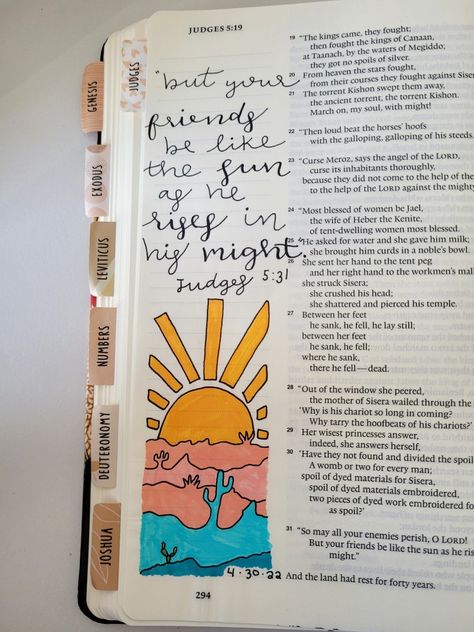 JUDGES 5:19
JUDGES
GENESIS
EXODUS
LEVITICUS
NUMBERS
DEUTERONOMY
JOSHUA
"but your
friends
be like
the sun
as he
rises in
his might."
Judges 5:31
4.30.22
294
19 "The kings came, they fought;
then fought the kings of Canaan,
at Taanach, by the waters of Megiddo;
they got no spoils of silver.
20 From heaven the stars fought,
from their courses they fought against Sise
21 The torrent Kishon swept them away,
the ancient torrent, the torrent Kishon.
March on, my soul, with might!
22 "Then loud beat the horses' hoofs
with the galloping, galloping of his steeds.
23 "Curse Meroz, says the angel of the LORD,
curse its inhabitants thoroughly,
because they did not come to the help of the
to the help of the LORD against the mighty
24 "Most blessed of women be Jael,
the wife of Heber the Kenite,
of tent-dwelling women most blessed.
25 He asked for water and she gave him milk;
she brought him curds in a noble's bowl.
26 She sent her hand to the tent peg
and her right hand to the workmen's mal
she struck Sisera;
she crushed his head;
she shattered and pierced his temple.
27 Between her feet
he sank, he fell, he lay still;
between her feet
he sank, he fell;
where he sank,
there he fell—dead.
28 "Out of the window she peered,
the mother of Sisera wailed through the
'Why is his chariot so long in coming?
Why tarry the hoofbeats of his chariots?'
29 Her wisest princesses answer,
indeed, she answers herself,
30 'Have they not found and divided the spoil
A womb or two for every man;
spoil of dyed materials for Sisera,
spoil of dyed materials embroidered,
two pieces of dyed work embroidered fo
as spoil?'
31 "So may all your enemies perish, O LORD!
But your friends be like the sun as he ris
might."
And the land had rest for forty years.